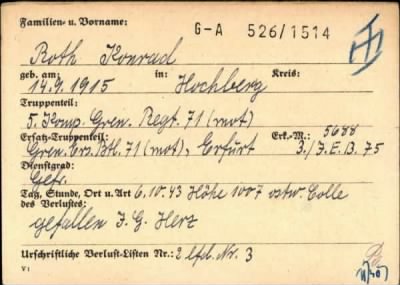 Familien- u. Vorname: G-A 526/1514
Roth Konrad
geb. am: in: Kreis:
14.9.1915 Hochberg
Truppenteil:
5. Komp. Gren. Regt. 71 (mot)
Ersatz-Truppenteil: Erk.-M.: 5688
Gren. Ers. Btl. 71 (mot), Erfurt 3./J.E.B. 75
Dienstgrad:
Gefr.
Tag, Stunde, Ort u. Art 6.10.43 Höhe 1007 ostw. Colle
des Verlustes:
gefallen I. G. Herz
Urschriftliche Verlust-Listen Nr.: 2 lfd. Nr. 3
V: